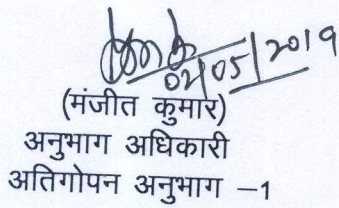 02/05/2019
(मंजीत कुमार)
अनुभाग अधिकारी
अतिगोपन अनुभाग –1